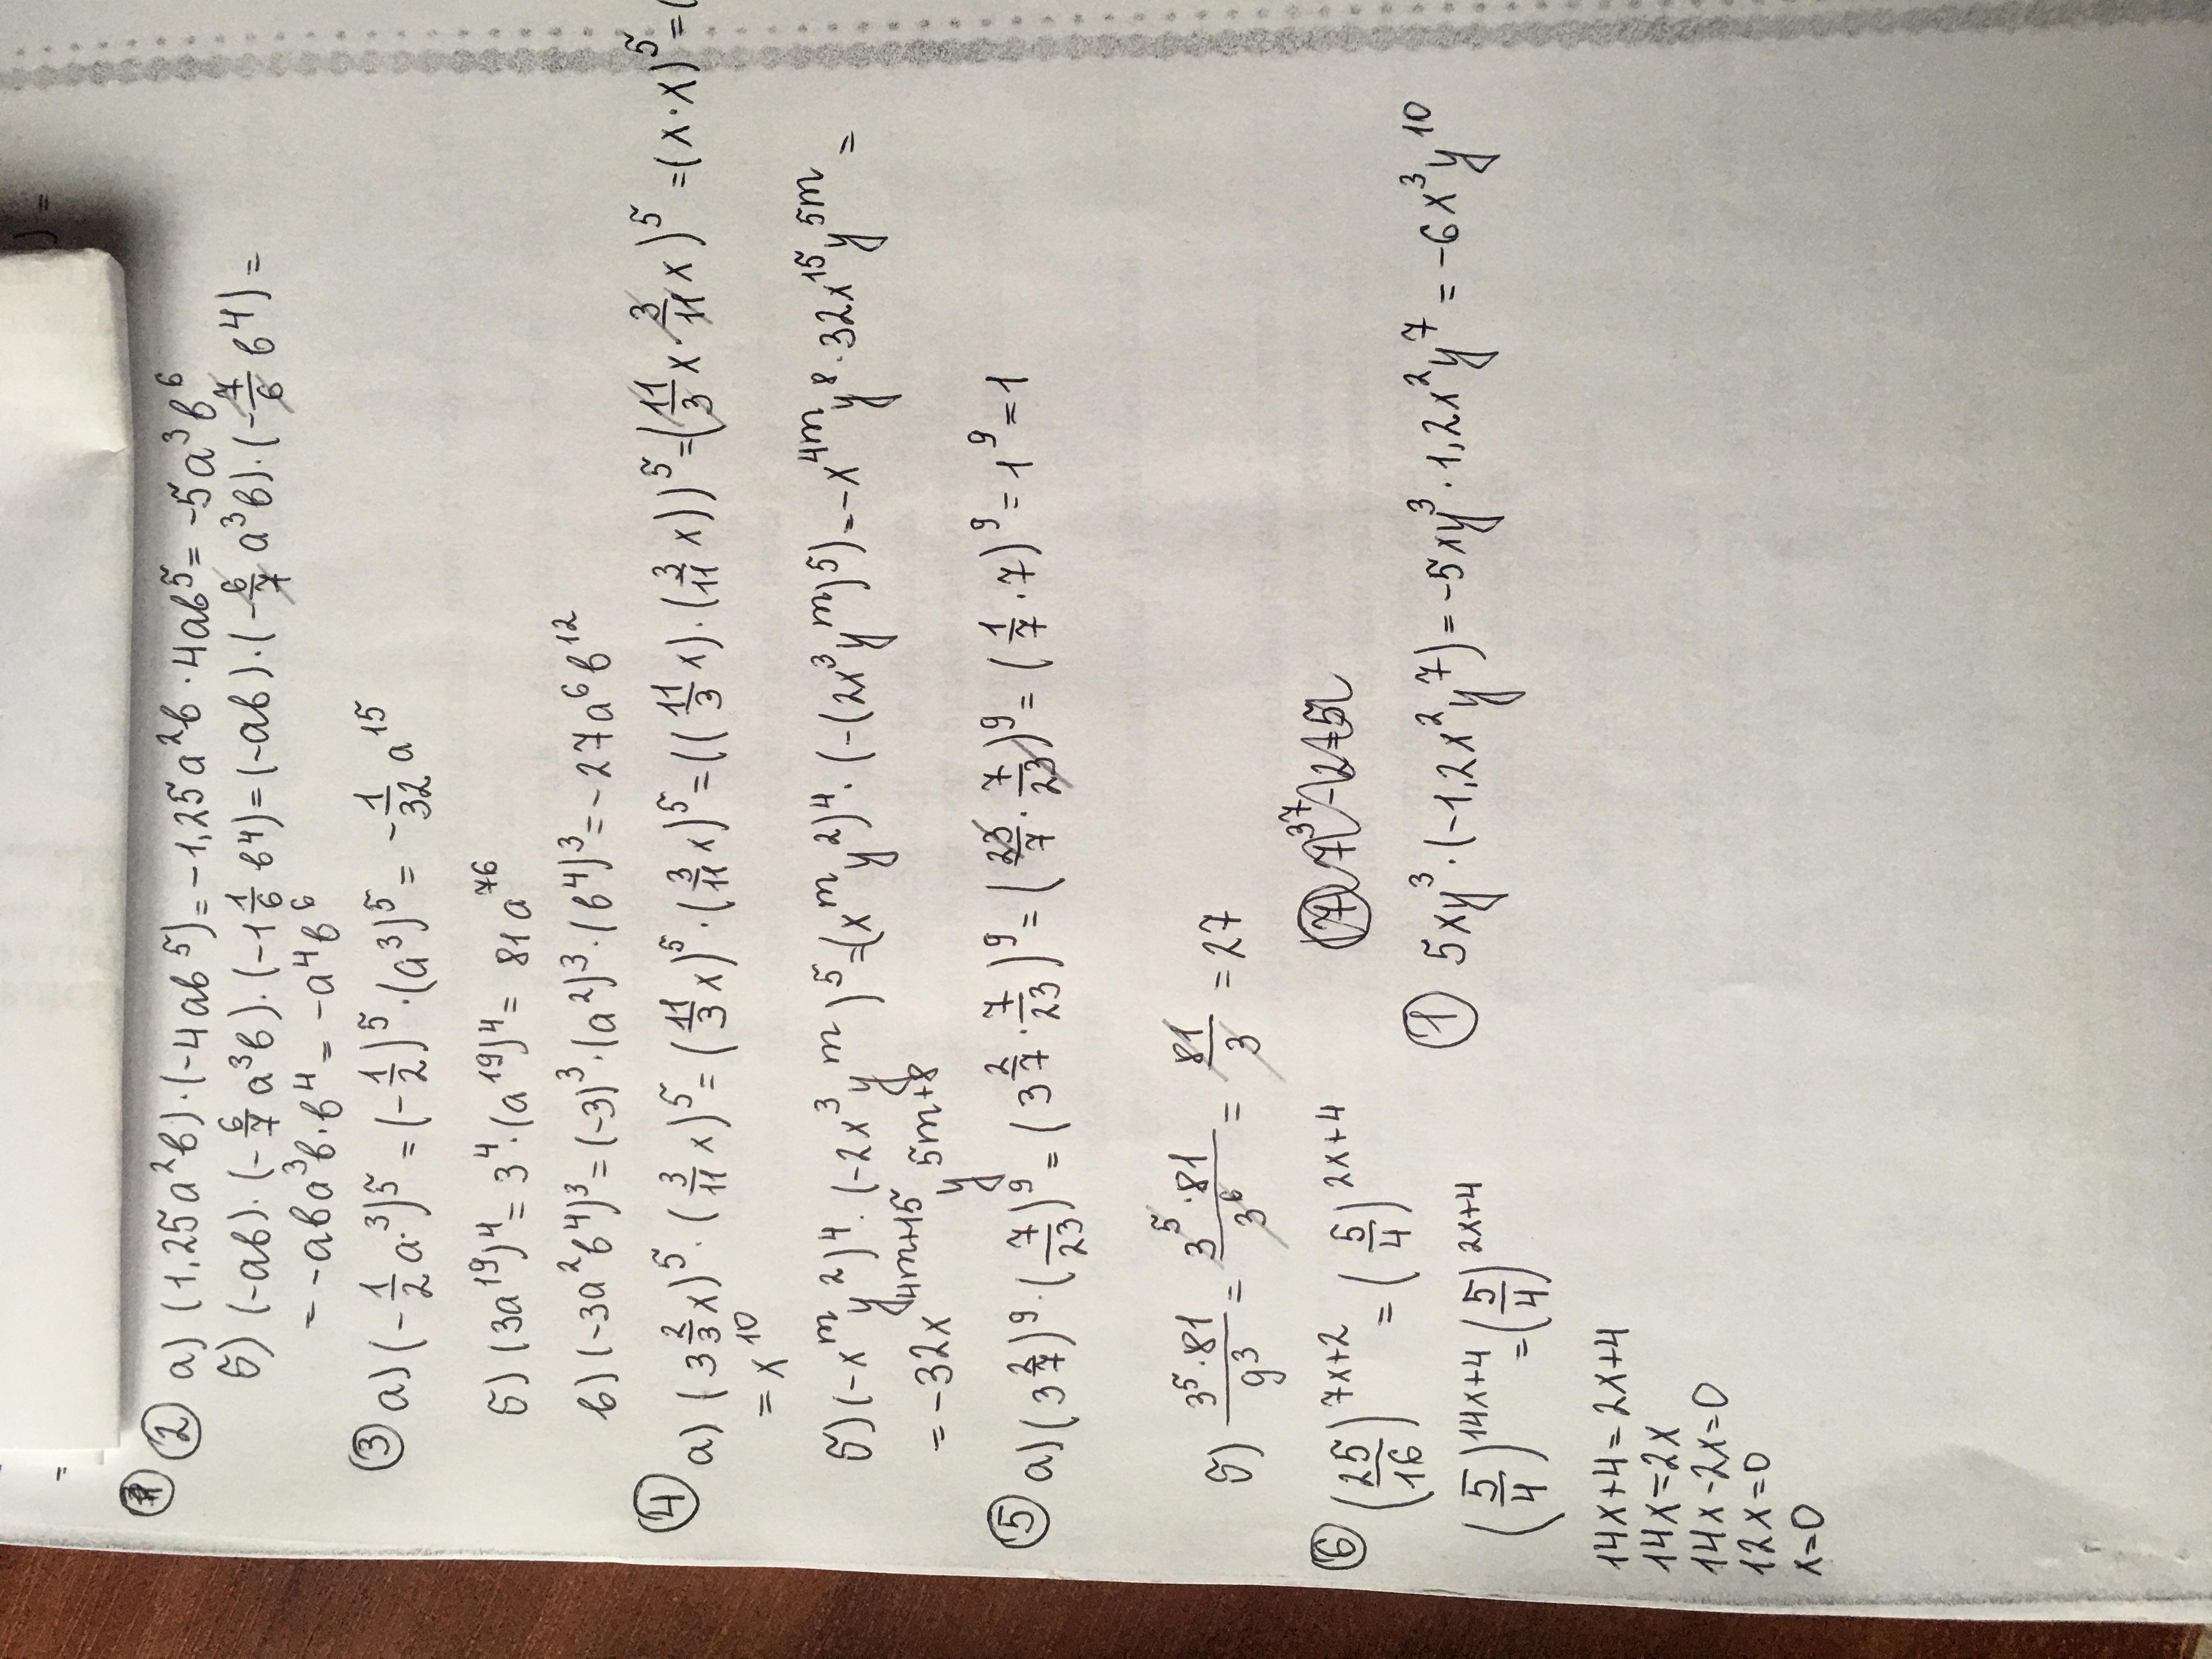 ② а) (1,25a²b)·(-4ab⁵)=-1,25a²b·4ab⁵=-5a³b⁶
б) (-ab)·(-6/7 a³b)·(-1 1/6 b⁴)=(-ab)·(-6/7 a³b)·(-7/6 b⁴)=
=-aba³b·b⁴=-a⁴b⁶
③ а) (-1/2 a·³)⁵=(-1/2)⁵·(a³)⁵=-1/32 a¹⁵
б) (3a¹⁹)⁴=3⁴·(a¹⁹)⁴=81a⁷⁶
в) (-3a²b⁴)³=(-3)³·(a²)³·(b⁴)³=-27a⁶b¹²
④ а) (3 2/3 x)⁵·(3/11 x)⁵=(11/3 x)⁵·(3/11 x)⁵=((11/3 x)·(3/11 x))⁵=(11/3 x·3/11 x)⁵=(x·x)⁵=(
=x¹⁰
б) (-xᵐy²)⁴·(-2x³yᵐ)⁵=(xᵐy²)⁴·(-(2x³yᵐ)⁵)=-x⁴ᵐy⁸·32x¹⁵y⁵ᵐ=
=-32x⁴ᵐ⁺¹⁵y⁵ᵐ⁺⁸
⑤ а) (3 2/7)⁹·(7/23)⁹=(3 2/7·7/23)⁹=(23/7·7/23)⁹=(1/7·7)⁹=1⁹=1
б) 3⁵·81/9³=3⁵·81/3⁶=81/3=27
⑥ (25/16)⁷ˣ⁺²=(5/4)²ˣ⁺⁴
(5/4)¹⁴ˣ⁺⁴=(5/4)²ˣ⁺⁴
14x+4=2x+4
14x=2x
14x-2x=0
12x=0
x=0
① 5xy³·(-1,2x²y⁷)=-5xy³·1,2x²y⁷=-6x³y¹⁰